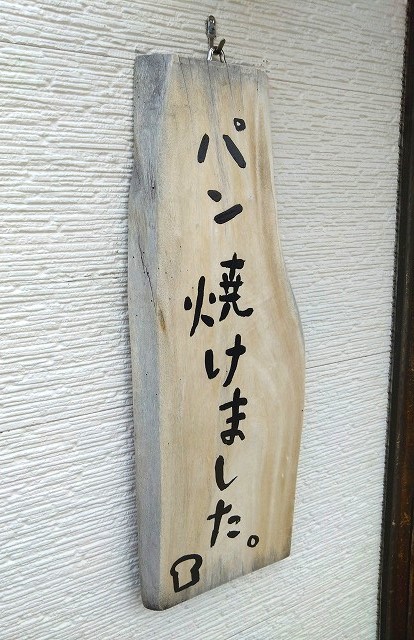 パン焼けました。